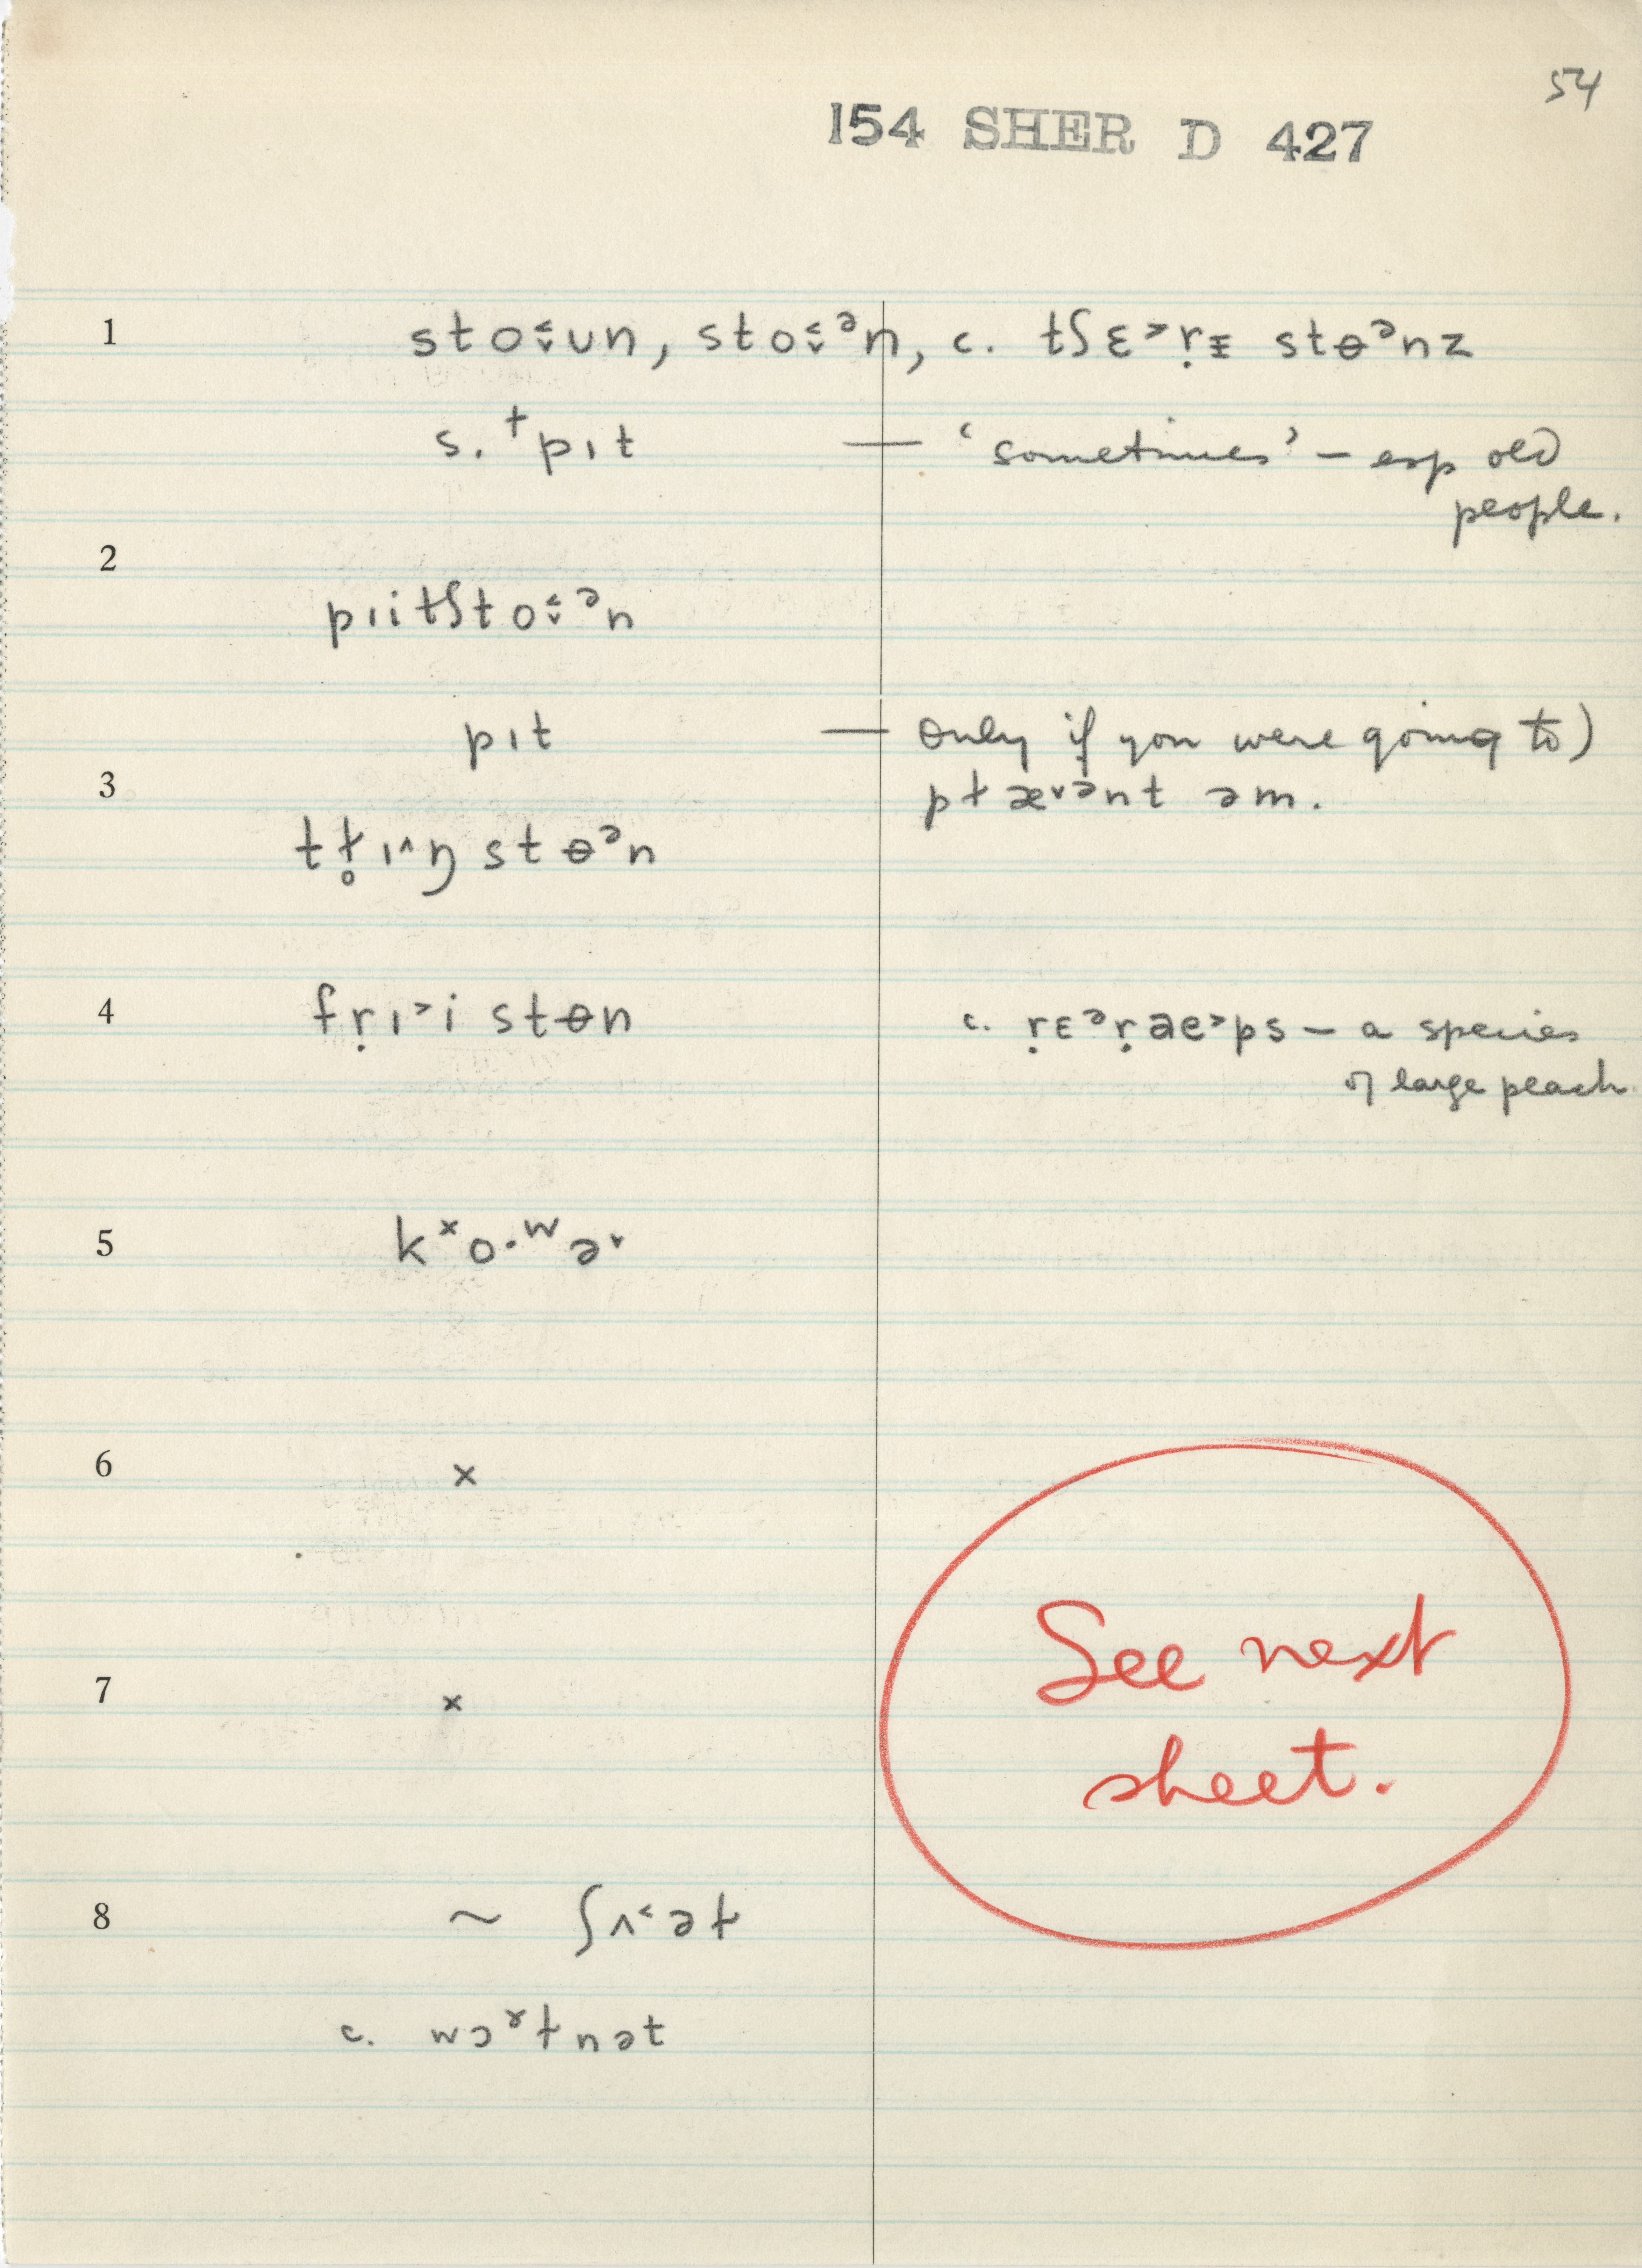 54
154 SHER D 427
1 sto˂̬un, sto˂̬ᵊn, c. tʃɛ˃ṛɪ stɵᵊnz
s. †pɪt — ‘sometimes’ – esp old
people.
2
pɪitʃto˂̬ᵊn
pɪt — only if you were going to)
3 pɫæ˅ᵊnt əm.
tɫ̥ɪ˄ŋ stɵᵊn
4 fṛɪ˃i stɵn c. ṛɛᵊṛae˃ps – a species
of large peach
5 kˣo·ʷə˅
6 ×
7 ×
See next
sheet.
8 ~ ʃʌ˂əɫ
c. wɔˠɫnət